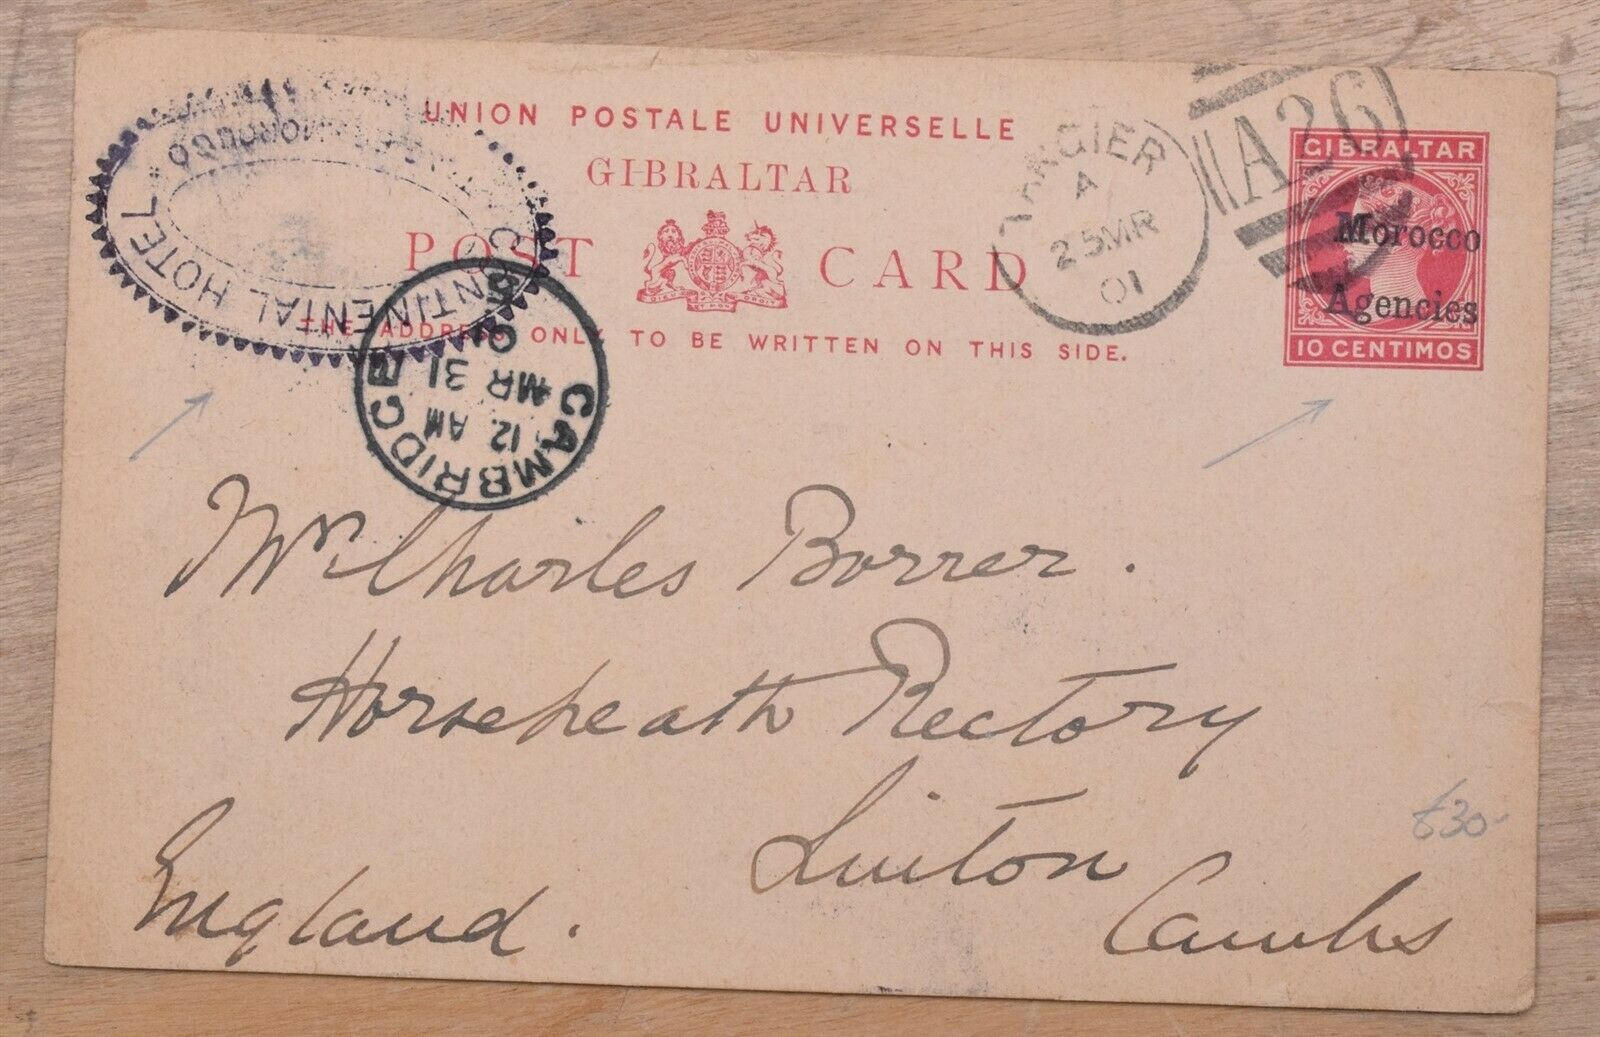 UNION POSTALE UNIVERSELLE
GIBRALTAR
POST CARD
THE ADDRESS ONLY TO BE WRITTEN ON THIS SIDE.
DIEU ET MON DROIT
CONTINENTAL HOTEL
MOROCCO
TANGIER
A
25 MR
01
A26
GIBRALTAR
Morocco
Agencies
10 CENTIMOS
CAMBRIDGE
12 AM
MR 31
01
Mr. Charles Borrer.
Horseheath Rectory
Linton
Cambs
England.
£30-